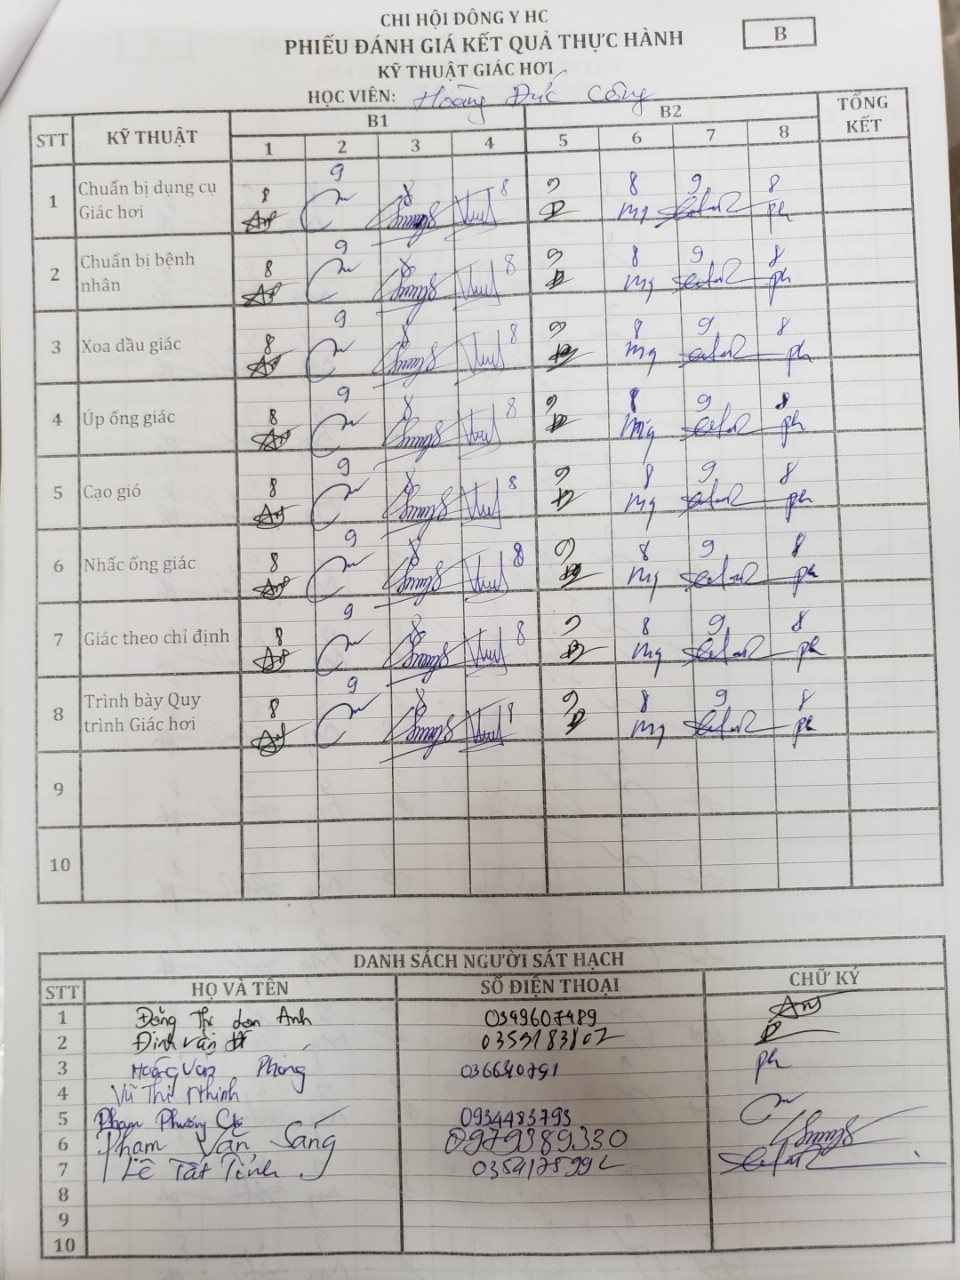 CHI HỘI ĐÔNG Y HC
PHIẾU ĐÁNH GIÁ KẾT QUẢ THỰC HÀNH
B
KỸ THUẬT GIÁC HƠI
HỌC VIÊN: Hoàng Đức Công
STT KỸ THUẬT B1 B2 TỔNG KẾT
1 2 3 4 5 6 7 8
1 Chuẩn bị dụng cụ Giác hơi 8 9 8 8 9 8 9 8
2 Chuẩn bị bệnh nhân 8 9 8 8 9 8 9 8
3 Xoa dầu giác 8 9 8 8 9 8 9 8
4 Úp ống giác 8 9 8 8 9 8 9 8
5 Cạo gió 8 9 8 8 9 8 9 8
6 Nhấc ống giác 8 9 8 8 9 8 9 8
7 Giác theo chỉ định 8 9 8 8 9 8 9 8
8 Trình bày Quy trình Giác hơi 8 9 8 8 9 8 9 8
9
10
DANH SÁCH NGƯỜI SÁT HẠCH
STT HỌ VÀ TÊN SỐ ĐIỆN THOẠI CHỮ KÝ
1 Đồng Thị Anh 0349607489
2 Đinh Văn
3 Hoàng Văn Phóng 036640791 ph
4 Vũ Thị Nhinh
5 Phạm Phương 0934483793
6 Phạm Văn Sáng 0979389330
7 Lê Tất Tính
8
9
10